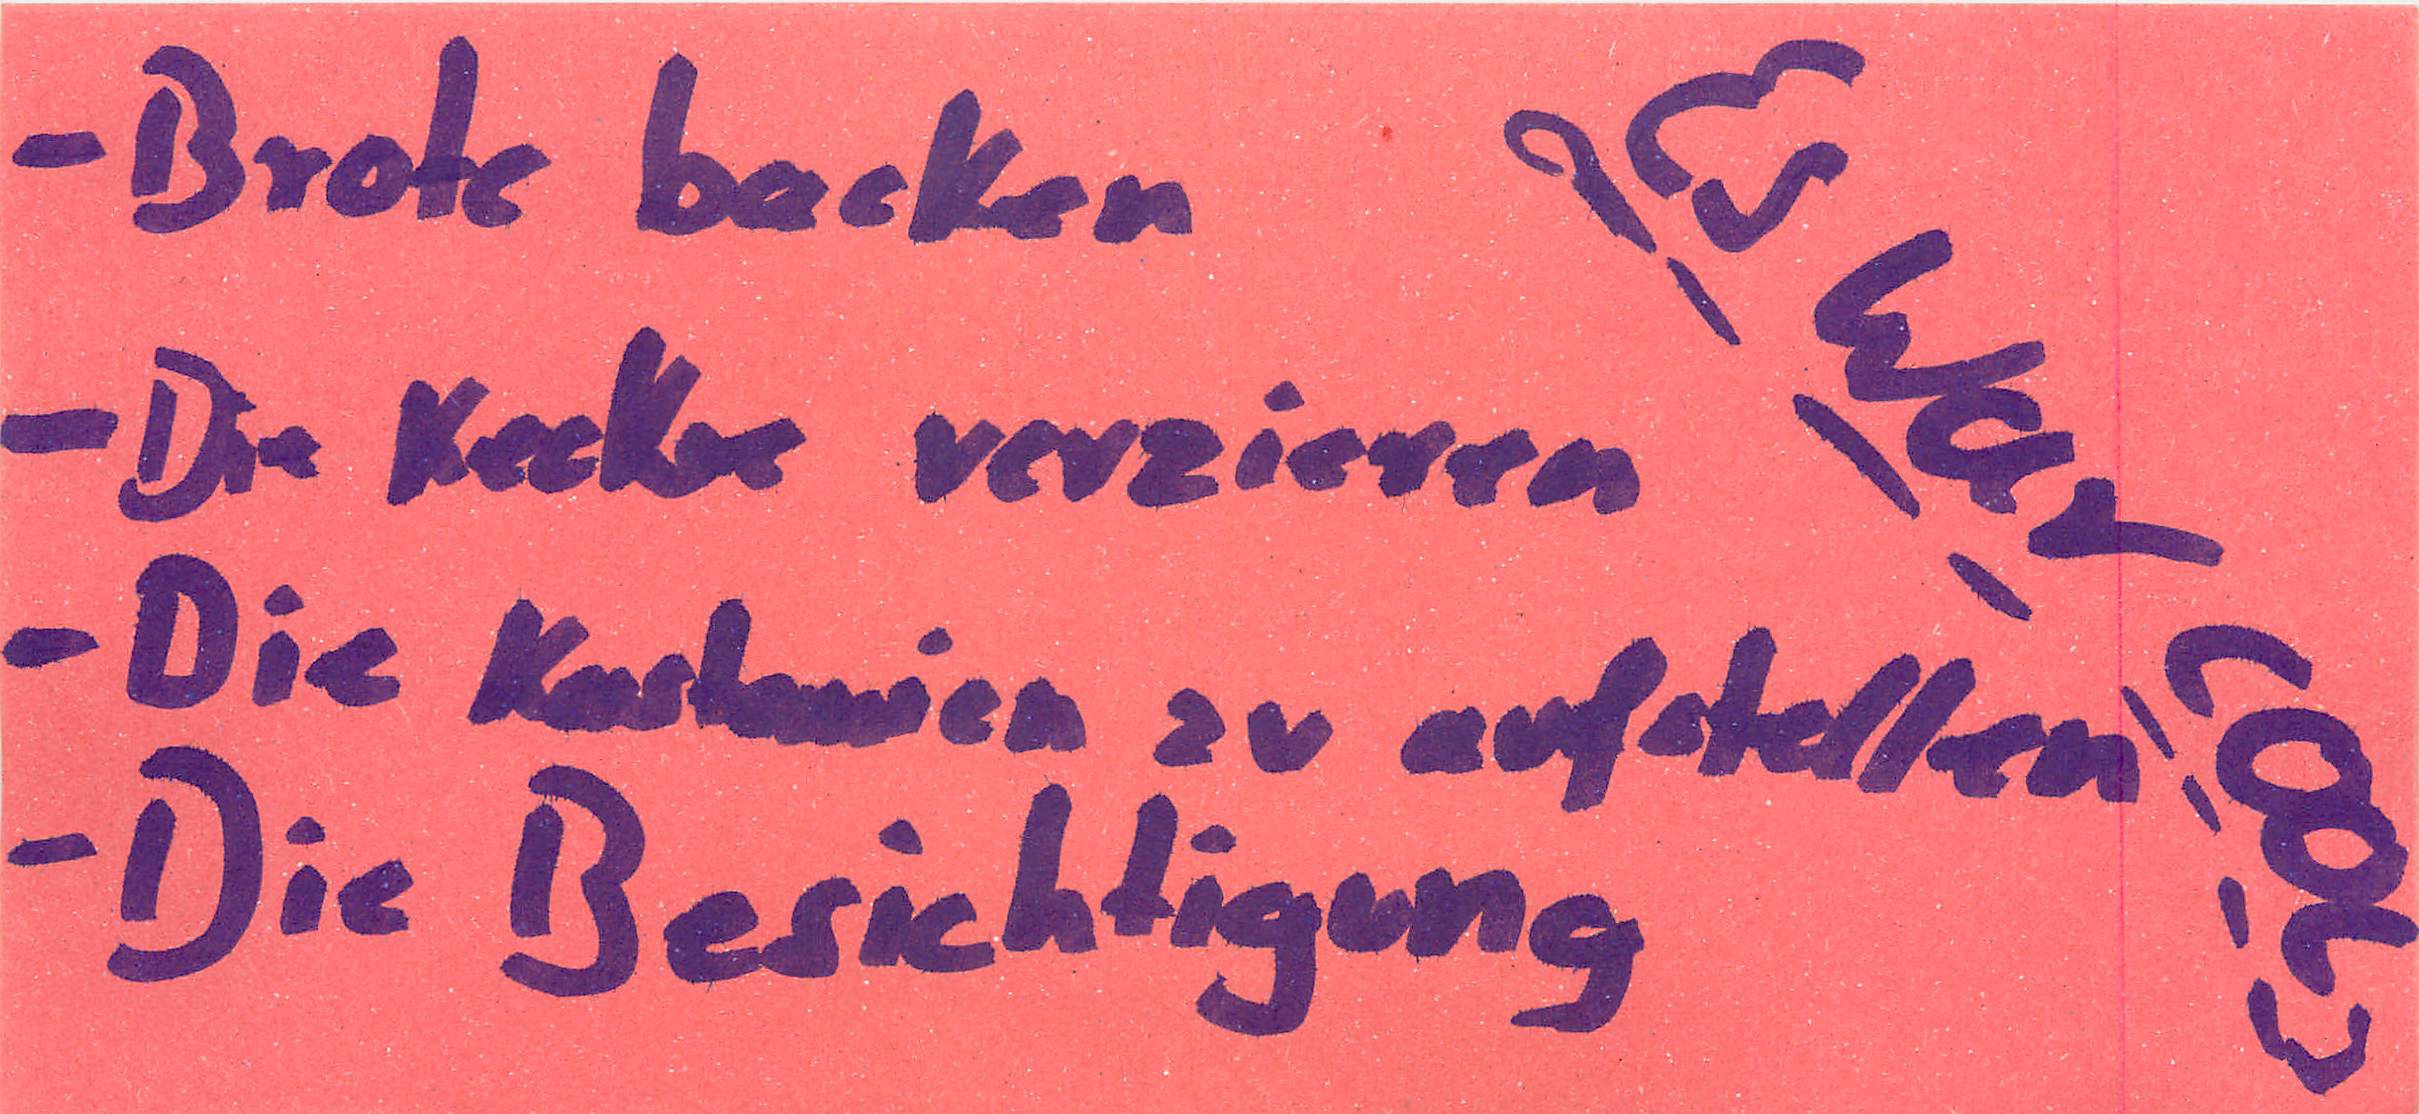 - Brote backen
- Die Keckse verzieren
- Die Kastanien zu aufstellen
- Die Besichtigung
Es war cool